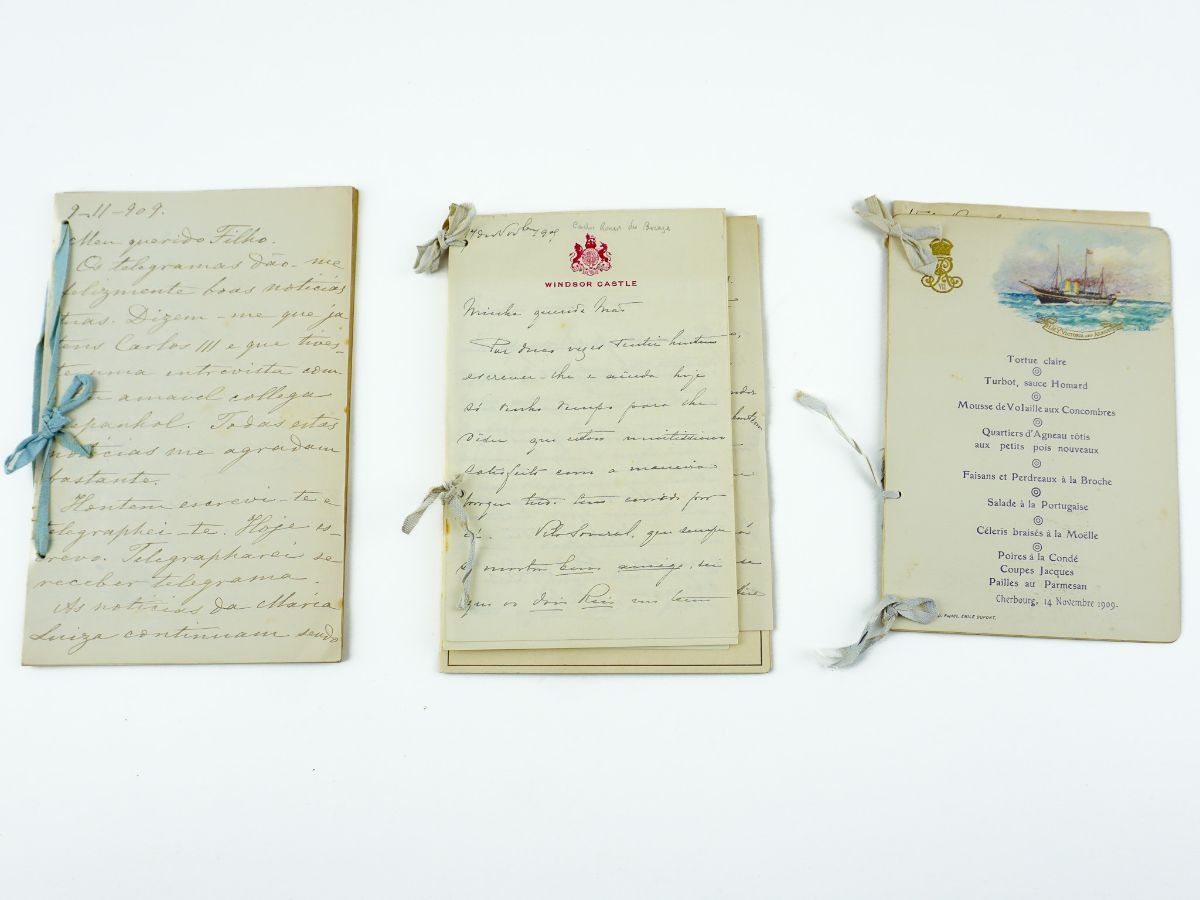 9-11-909.
Meu querido Filho.
Os telegramas dão-me
felizmente boas noticias
tuas. Dizem-me que ja
tens Carlos III e que tives-
te uma entrevista com
amavel collega
espanhol. Todas estas
noticias me agradam
bastante.
Hontem escrevi-te e
telegraphei-te. Hoje es-
crevo. Telegrapharei se
receber telegrama.
As noticias da Maria
Luiza continuam sendo
WINDSOR CASTLE
Minha querida Mãe
Por duas vezes tentei hontem
escrever-lhe e ainda hoje
só tenho tempo para lhe
dizer que estou muitissimo
satisfeito com a maneira
porque tudo tem corrido por
cá. Pelo Soveral, que sempre
se mostra bom amigo, sei
que os dois Reis
VII
VICTORIA AND ALBERT
Tortue claire
Turbot, sauce Homard
Mousse de Volaille aux Concombres
Quartiers d'Agneau rôtis
aux petits pois nouveaux
Faisans et Perdreaux à la Broche
Salade à la Portugaise
Céleris braisés à la Moëlle
Poires à la Condé
Coupes Jacques
Pailles au Parmesan
Cherbourg, 14 Novembre 1909.
EMILE DUPONT,